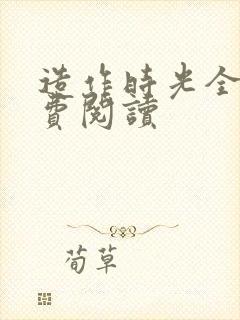 造作時光全
費閱讀
荀草